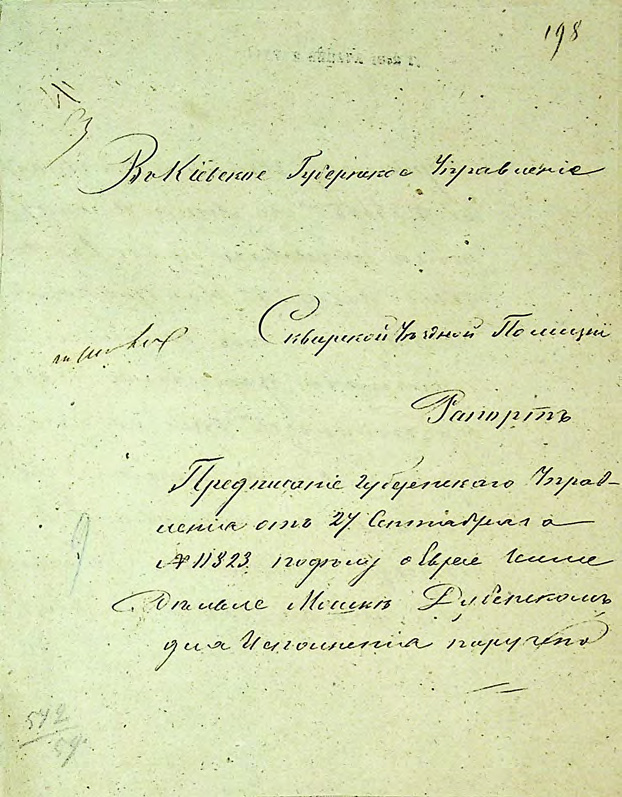 198
Въ Кіевское Губернское Управленіе
Сквирской Уѣздной Полиціи
Рапортъ
Предписаніе Губернскаго Управ-
ленія отъ 27 Сентября за
№ 11823. по делу о Еврее
Мошкѣ Дубенскомъ
для Исполненія поручено
542
59